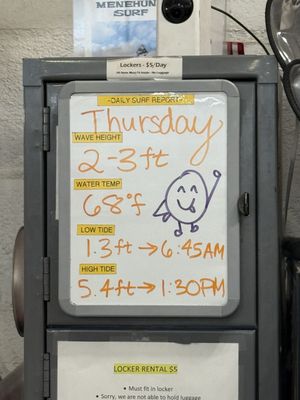 MENEHUN
SURF
Lockers - $5/Day
-DAILY SURF REPORT-
Thursday
WAVE HEIGHT
2-3ft
WATER TEMP
68°f
LOW TIDE
1.3ft → 6:45AM
HIGH TIDE
5.4ft → 1:30PM
LOCKER RENTAL $5
• Must fit in locker
• Sorry, we are not able to hold luggage